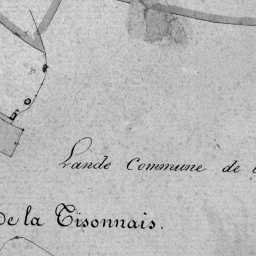 Lande Commune de
de la Tisonnais.